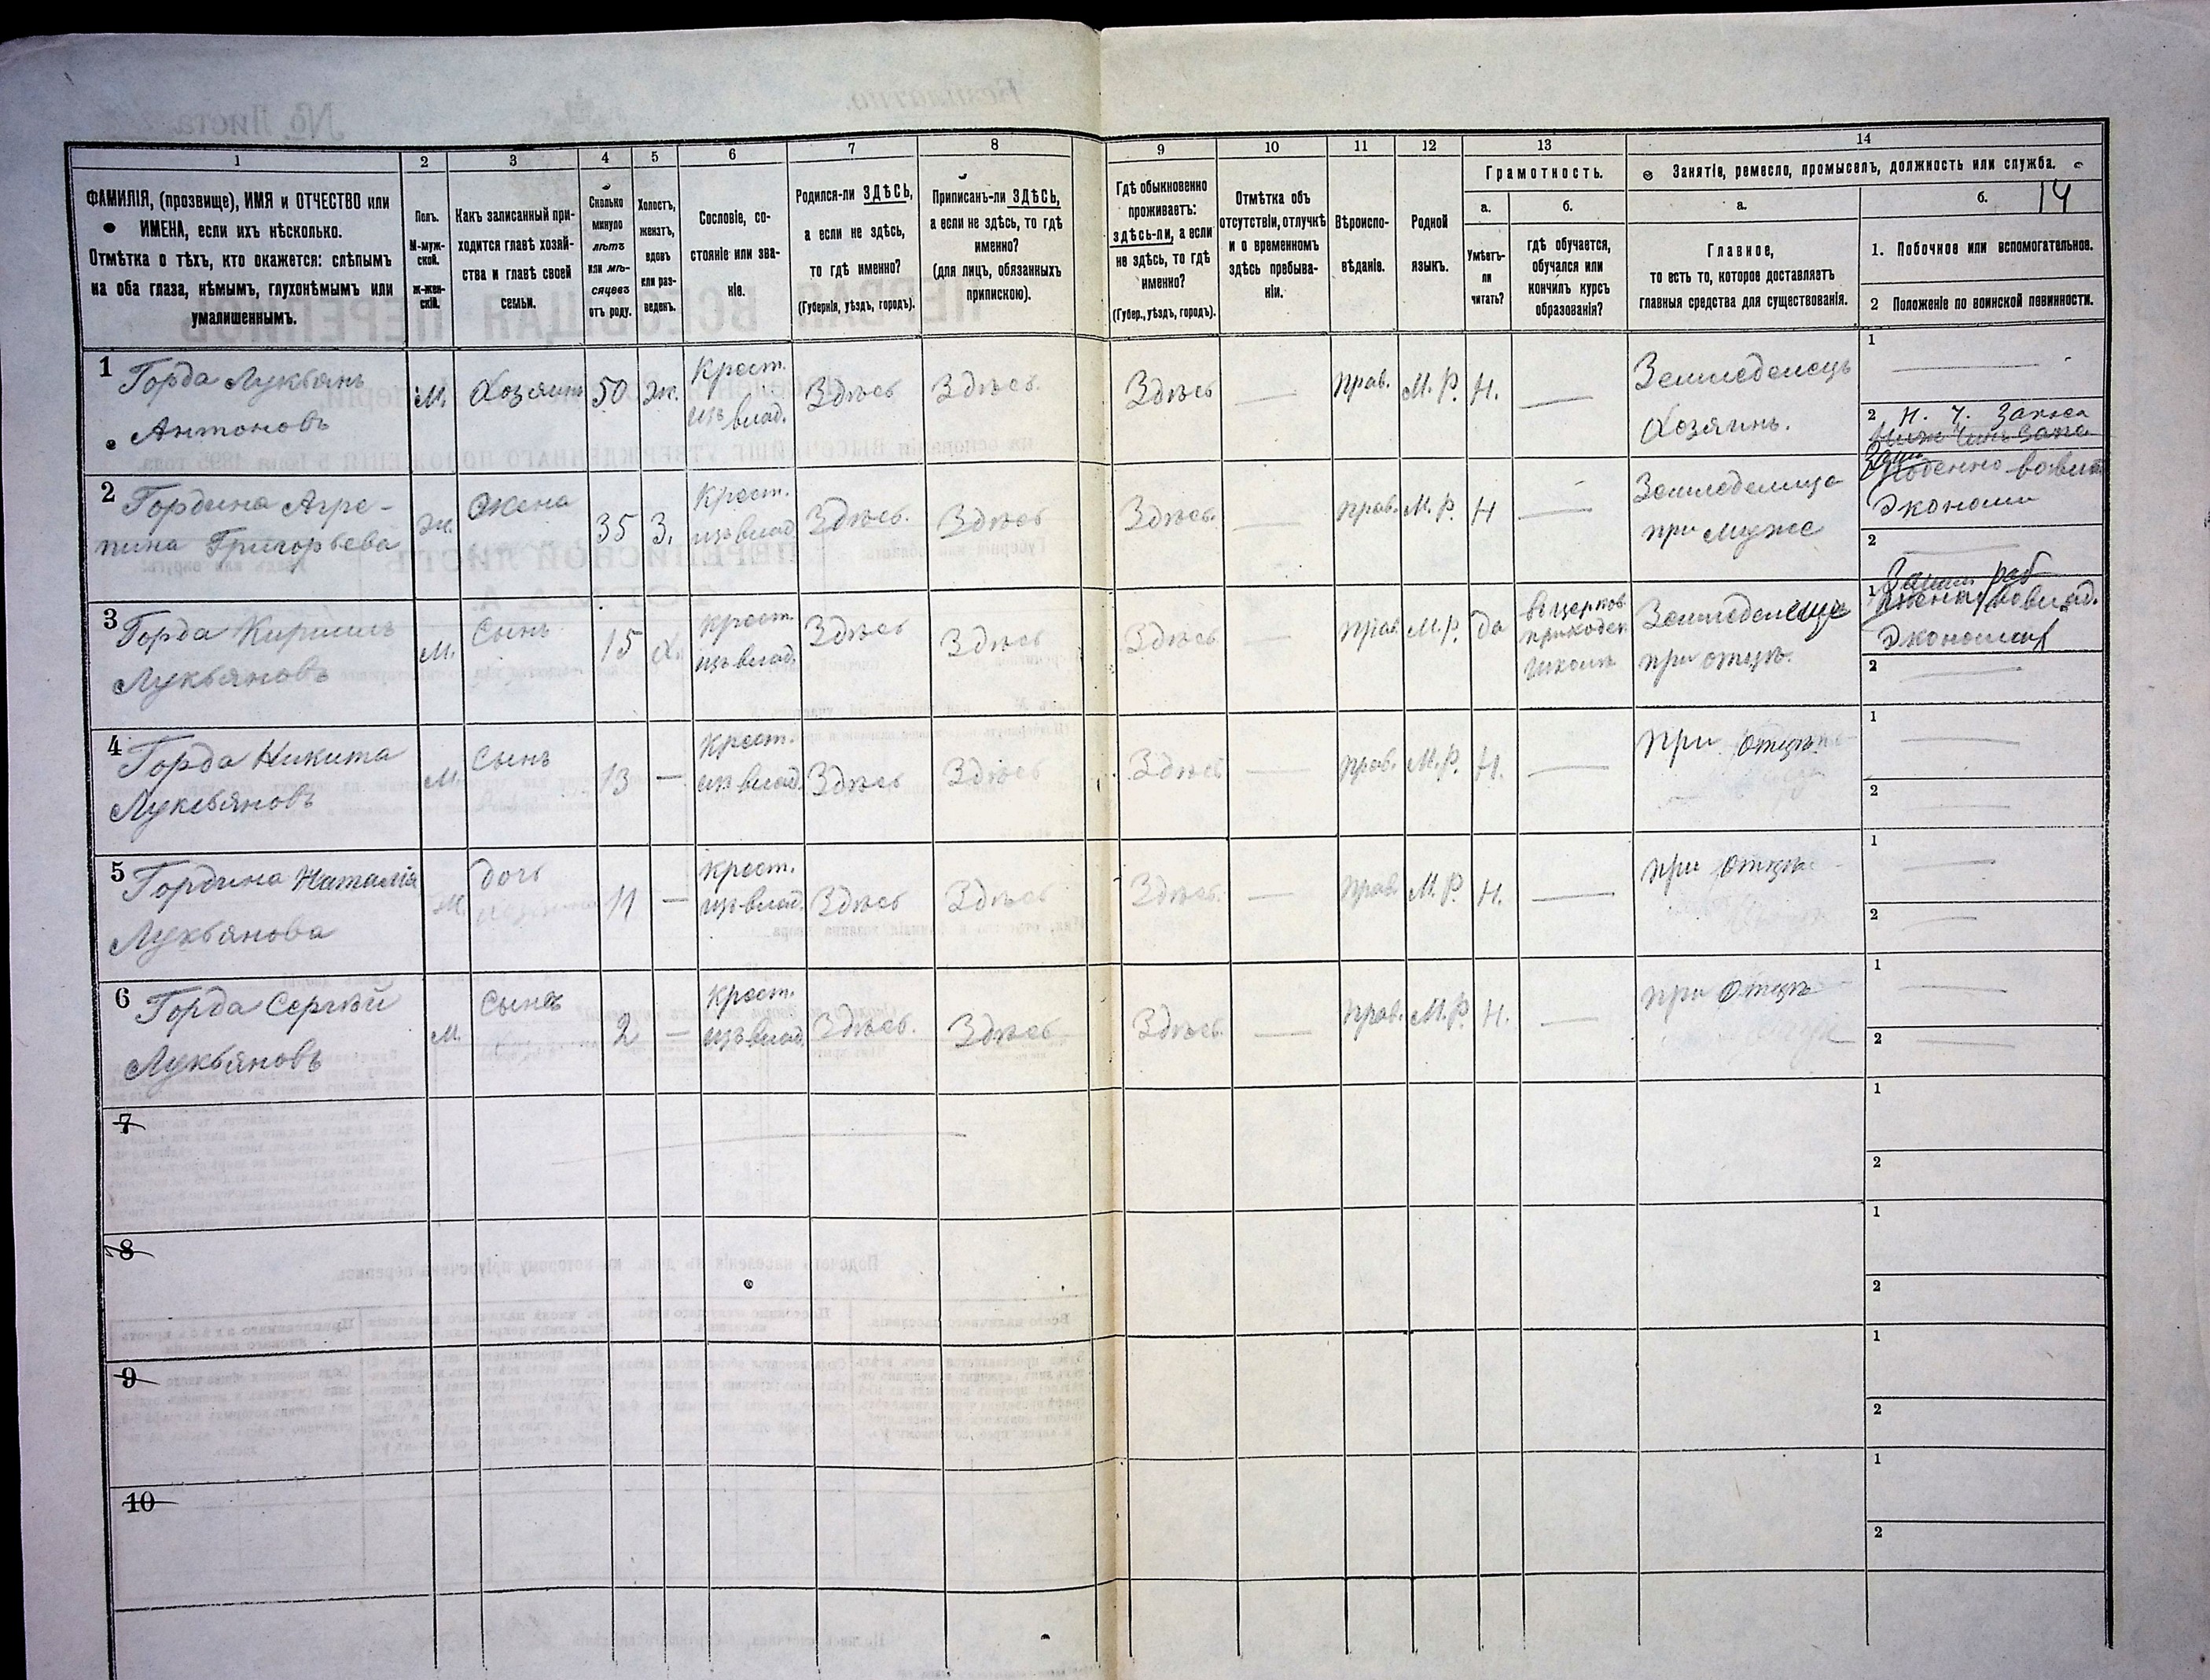 1 2 3 4 5 6 7 8 9 10 11 12 13 14
ФАМИЛІЯ, (прозвище), ИМЯ и ОТЧЕСТВО или
ИМЕНА, если ихъ нѣсколько.
Отмѣтка о тѣхъ, кто окажется: слѣпымъ
на оба глаза, нѣмымъ, глухонѣмымъ или
умалишеннымъ.
Полъ.
М-муж-
ской.
ж-жен-
скій.
Какъ записанный при-
ходится главѣ хозяй-
ства и главѣ своей
семьи.
Сколько
минуло
лѣтъ
или мѣ-
сяцевъ
отъ роду.
Холостъ,
женатъ,
вдовъ
или раз-
веденъ.
Сословіе, со-
стояніе или зва-
ніе.
Родился-ли ЗДѢСЬ,
а если не здѣсь,
то гдѣ именно?
(Губернія, уѣздъ, городъ).
Приписанъ-ли ЗДѢСЬ,
а если не здѣсь, то гдѣ
именно?
(для лицъ, обязанныхъ
припискою).
Гдѣ обыкновенно
проживаетъ:
здѣсь-ли, а если
не здѣсь, то гдѣ
именно?
(Губер., уѣздъ, городъ).
Отмѣтка объ
отсутствіи, отлучкѣ
и о временномъ
здѣсь пребыва-
ніи.
Вѣроиспо-
вѣданіе.
Родной
языкъ.
Грамотность.
а.
Умѣетъ-
ли
читать?
б.
гдѣ обучается,
обучался или
кончилъ курсъ
образованія?
Занятіе, ремесло, промыселъ, должность или служба.
а.
Главное,
то есть то, которое доставляетъ
главныя средства для существованія.
б. 14
1. Побочное или вспомогательное.
2 Положеніе по воинской повинности.
1
Горда Лукьянъ
Антоновъ
М.
Хозяинъ
50
Ж.
Крест.
изъ влад.
Здѣсь
Здѣсь.
Здѣсь
—
прав.
М. Р.
Н.
—
Земледелецъ
Хозяинъ.
1 —
2 Н. Ч. Запаса
2
Гордина Агре-
пина Григорьева
Ж.
Жена
35
З.
Крест.
изъ влад
Здѣсь.
Здѣсь
Здѣсь.
—
прав.
М. Р.
Н
—
Земледелица
при мужѣ
Экономи
2 —
3
Горда Кирилъ
Лукьяновъ
М.
Сынъ
15
Х.
крест.
изъ влад.
Здѣсь
Здѣсь
Здѣсь
—
прав
М. Р.
да
въ церков
приходск
школѣ
при отцѣ.
1
2 —
4
Горда Никита
Лукьяновъ
М.
Сынъ
13
—
Крест.
изъ влад.
Здѣсь
Здѣсь
Здѣсь
—
прав.
М. Р.
Н.
—
при отцѣ
1 —
2 —
5
Гордина Наталія
Лукьянова
М.
дочь
11
—
Крест.
изъ влад.
Здѣсь
Здѣсь
Здѣсь.
—
Прав.
М. Р.
Н.
—
при отцѣ
1 —
2 —
6
Горда Сергѣй
Лукьяновъ
М.
Сынъ
2
—
Крест.
изъ влад
Здѣсь.
Здѣсь
Здѣсь.
—
прав.
М. Р.
Н.
—
при отцѣ
1 —
2 —
7
1
2
8
1
2
9
1
2
10
1
2